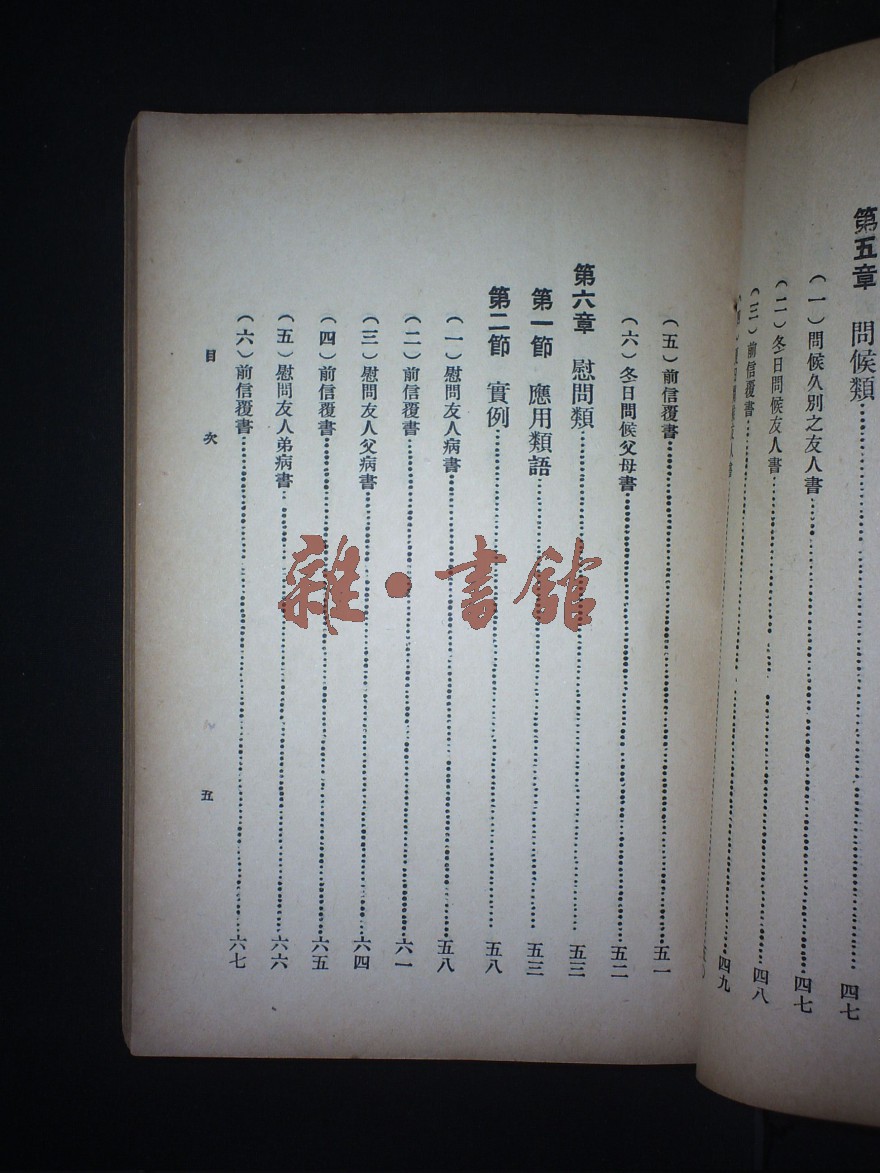 第五章 問候類……四七
(一)問候久別之友人書……四七
(二)冬日問候友人書……四八
(三)前信覆書……四九
友人書
(五)前信覆書……五一
(六)冬日問候父母書……五二
第六章 慰問類……五三
第一節 應用類語……五三
第二節 實例……五八
(一)慰問友人病書……五八
(二)前信覆書……六一
(三)慰問友人父病書……六四
(四)前信覆書……六五
(五)慰問友人弟病書……六六
(六)前信覆書……六七
目次 五
雜·書館